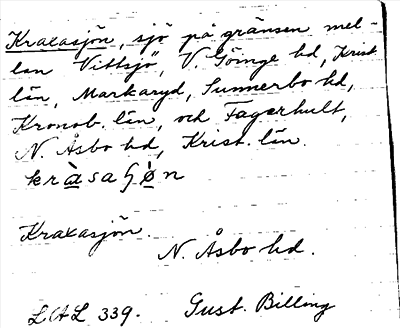 Kraxasjön, sjö på gränsen mel-
lan Vittsjö, V. Göinge hd, Krist.
län, Markaryd, Sunnerbo hd,
Kronob. län, och Fagerhult,
N. Åsbo hd, Krist. län.
Kraxasjön.
N. Åsbo hd.
LAL 339. Gust. Billing